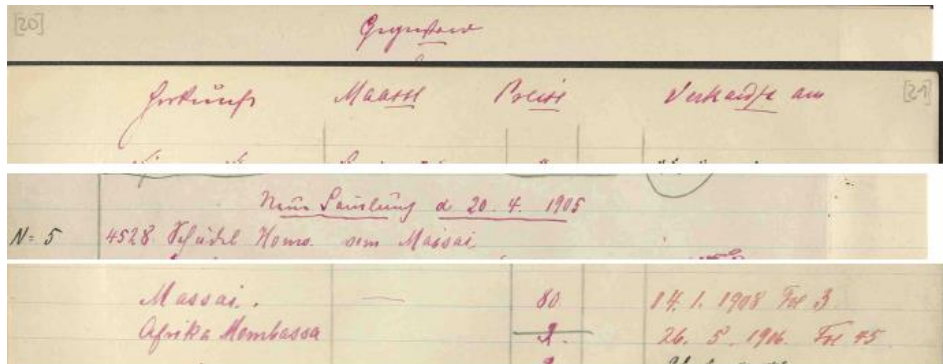 [20]
Gegenstand
Herkunft Maasse Preise Verkauft an [21]
Neue Samlung d 20. 4. 1905
N= 5 4528 Schädel Homo. vom Massai
Massai. — 80 14. 1. 1908 Fol 3
Afrika Mombassa 2. 26. 5. 1906. Fol 45